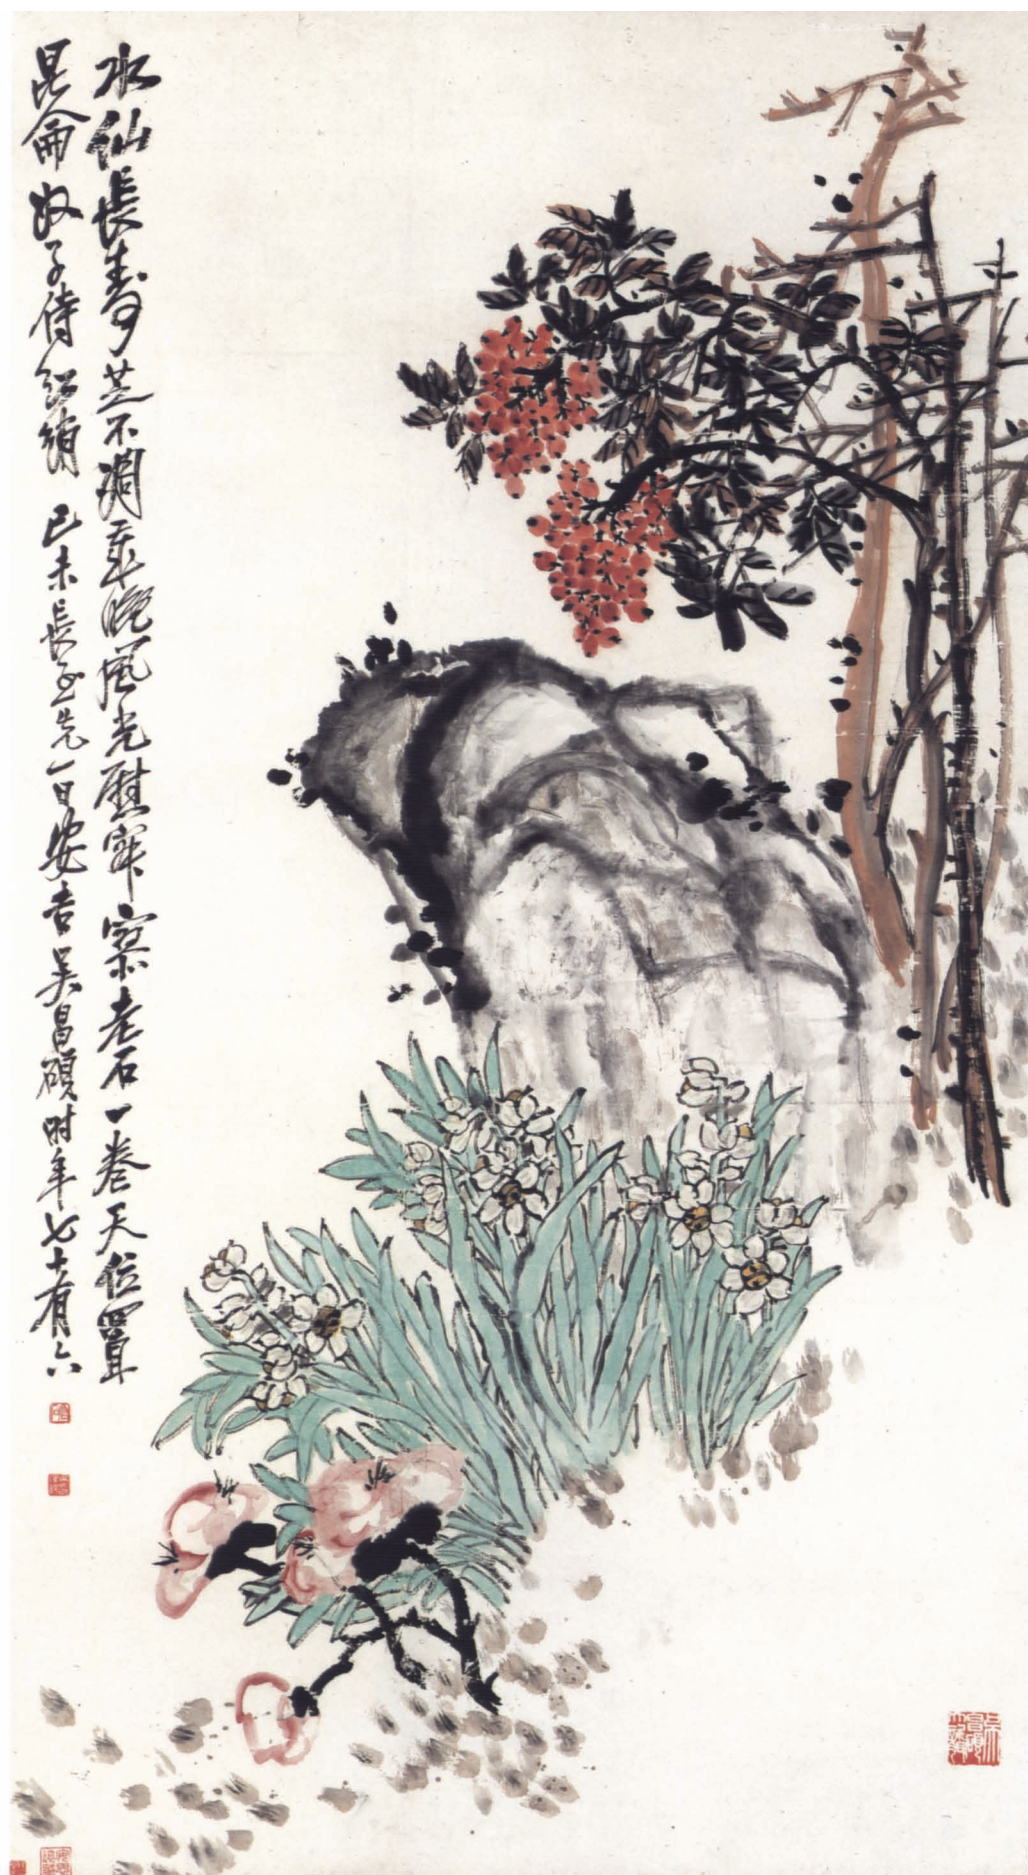 水仙長壽芝不凋年晚風光慰寂寥老石一卷天位置
昆侖奴子侍紅綃 己未長至先一日安吉吴昌碩時年七十有六